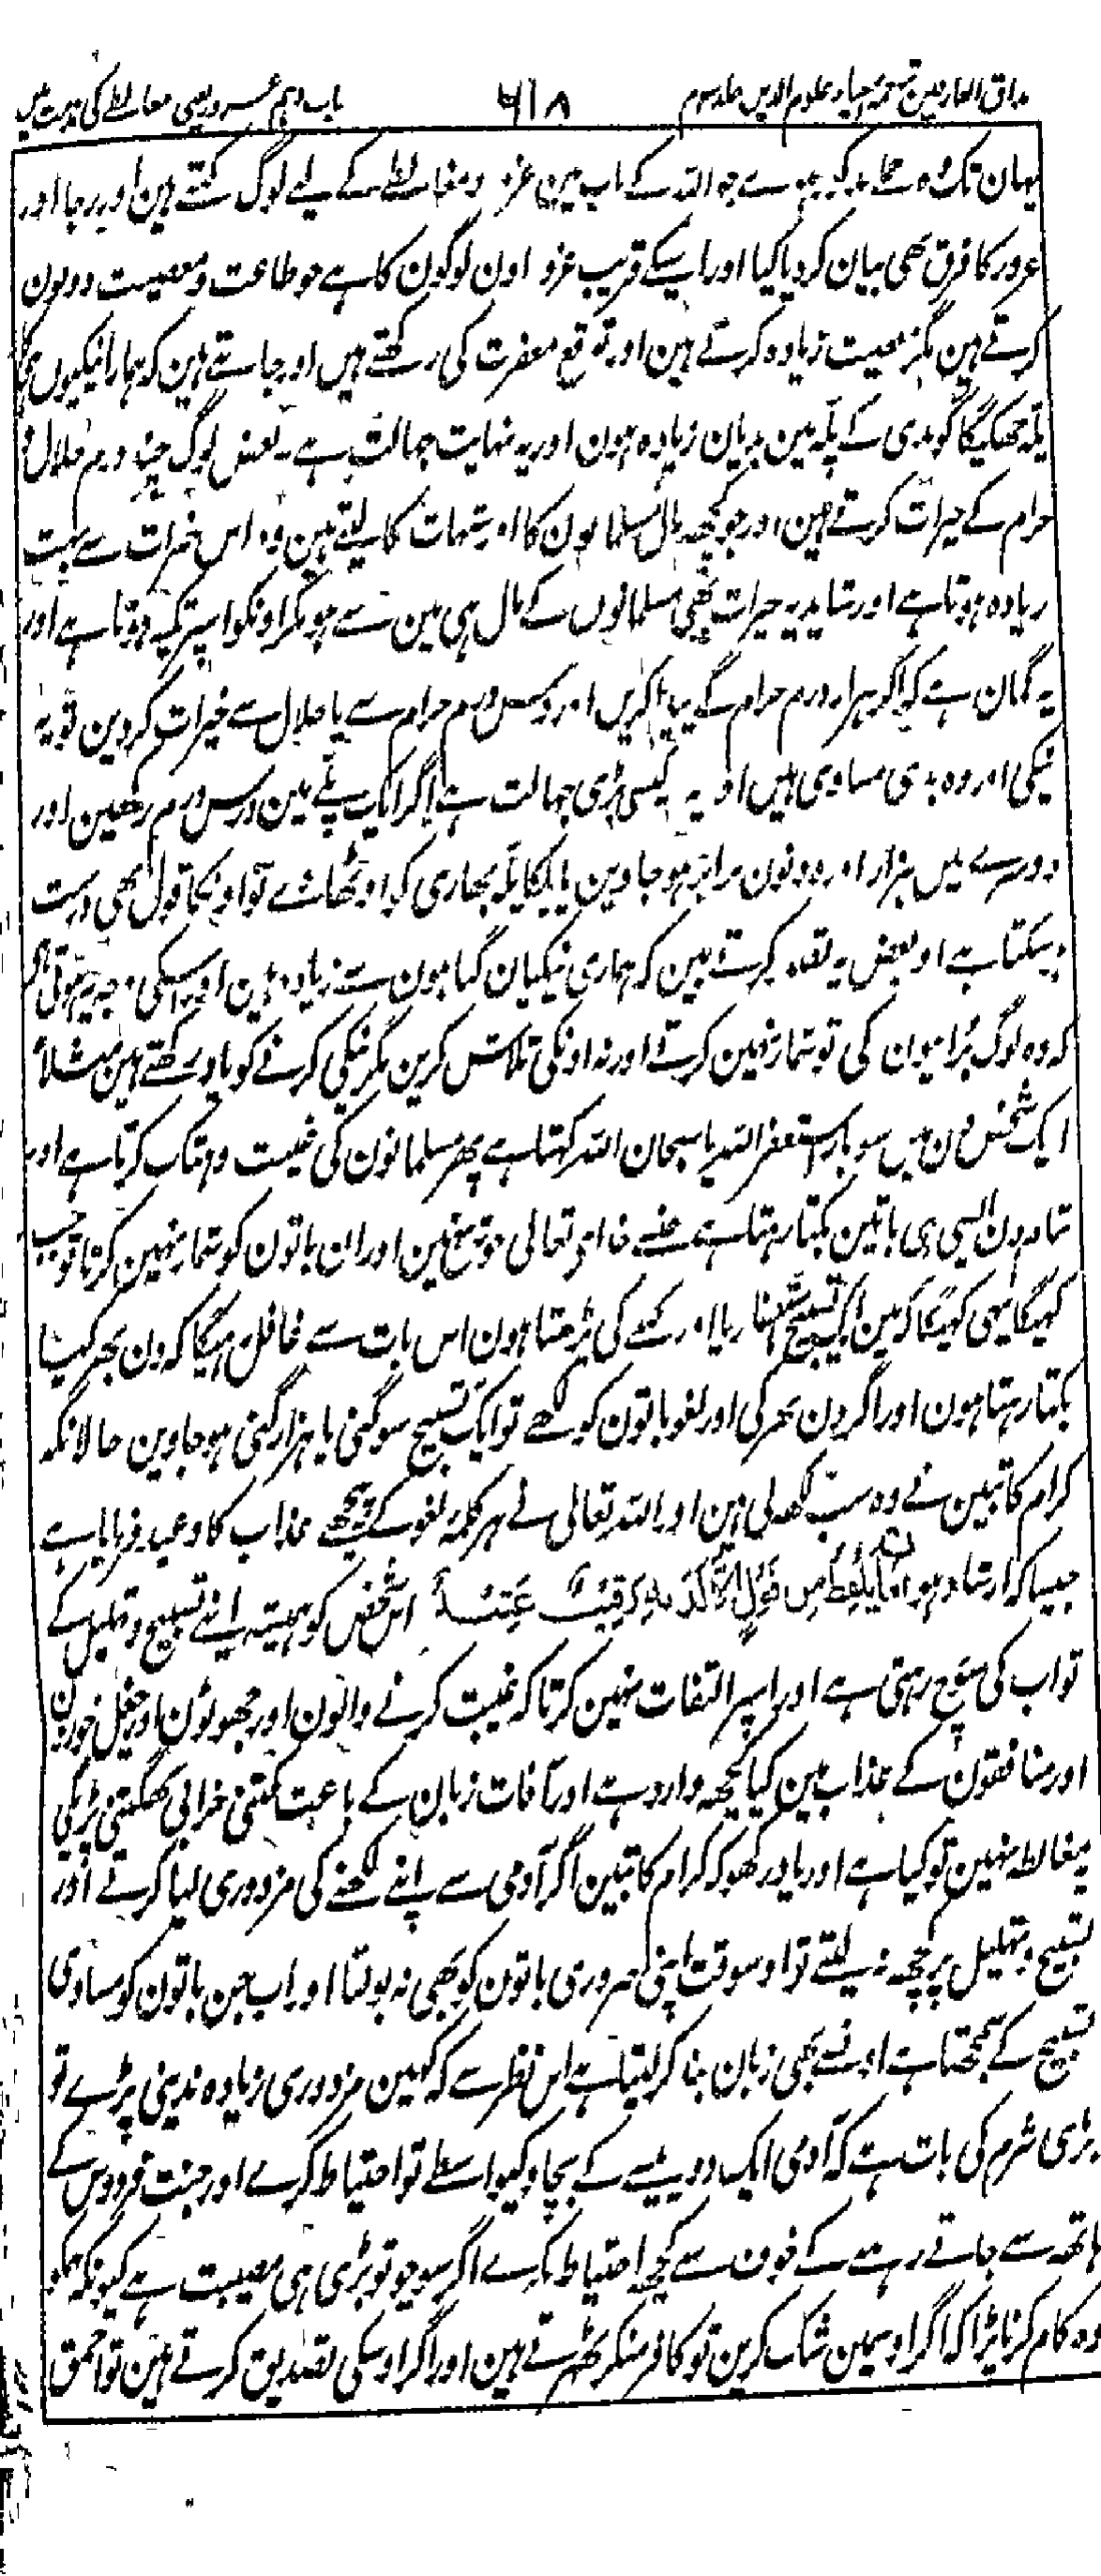 مذاق العارفین ترجمہ احیاء علوم الدین جلد سوم ۶۱۸ باب دہم غرور یعنی مغالطے کی مذمت میں
یہان تک وہ جملہ مذکور ہوے جو اللہ کے باب مین غرور و مغالطے کے لیے لوگ کہتے ہین اور رجا اور
غرور کا فرق بھی بیان کر دیا گیا اور اسیکے قریب غرور اون لوگون کا ہے جو طاعت و معصیت دونون
کرتے ہین مگر معصیت زیادہ کرتے ہین اور توقع مغفرت کی رکھتے ہیں اور جانتے ہین کہ ہمارا نیکیوں کا
پلہ جھکیگا گو بدی کے پلہ مین بدیان زیادہ ہون اور یہ نہایت جہالت ہے۔ بعض لوگ چند درم حلال و
حرام کے خیرات کرتے ہین اور جو کچھہ مال مسلمانون کا اور شبہات کا لیتے ہین وہ اس خیرات سے بہت
زیادہ ہوتا ہے اور شاید یہ خیرات بھی مسلمانوں کے مال ہی مین سے ہو مگر اونکو اسپر تکیہ ہوتا ہے اور
یہ گمان ہے کہ اگر ہزار درم حرام کے لیا کریں اور دس درم حرام سے یا حلال سے خیرات کر دین تو یہ
نیکی اور وہ بدی مساوی ہیں اور یہ کیسی بڑی جہالت ہے اگر ایک پلے مین دس درم رکھین اور
دوسرے میں ہزار اور دونون برابر ہو جاوین یا ہلکا پلہ بھاری کو اوٹھاوے تو اونکا قول بھی درست
ہو سکتا ہے اور بعض یہ تصور کرتے ہین کہ ہماری نیکیان گناہون سے زیادہ ہین اور اسکی وجہ یہ ہوتی ہے
کہ وہ لوگ برائیون کی تو شمار نہین کرتے اور نہ اونکی تلاش کرین مگر نیکی کرنے کو یاد رکھتے ہین مثلاً
ایک شخص دن میں سو بار استغفر اللہ یا سبحان اللہ کہتا ہے پھر مسلمانون کی غیبت و ہتک کرتا ہے اور
تمام دن ایسی ہی باتین بکتا رہتا ہے جنسے خدا تعالی خوش نہین اور ان باتون کو شمار نہین کرتا تو جب
کہیگا یہی کہیگا کہ مین ایک تسبیح استغفار یا اور کسی کی پڑھتا ہون اس بات سے غافل رہیگا کہ دن بھر کیا
بکتا رہتا ہون اور اگر دن بھر کی اور لغو باتون کو لکھے تو ایک تسبیح سو گنی یا ہزار گنی ہو جاوین حالانکہ
کرام کاتبین نے وہ سب لکھہ لی ہین اور اللہ تعالی نے ہر کلمہ لغو کے پیچھے عذاب کا وعید فرمایا ہے
جیسا کہ ارشاد ہوا ما یَلْفِظُ مِن قَوْلٍ إِلَّا لَدَیْهِ رَقِیْبٌ عَتِیْدٌ اس شخص کو ہمیشہ اپنے تسبیح و تہلیل کے
ثواب کی سوچ رہتی ہے اور اسپر التفات نہین کرتا کہ غیبت کرنے والون اور جھوٹون اور چغل خورون
اور منافقون کے عذاب مین کیا کچھہ وارد ہے اور آفات زبان کے باعث کتنی خرابی بھگتنی پڑیگی
یہ مغالطہ نہین تو کیا ہے اور یاد رکھو کہ کرام کاتبین اگر آدمی سے اپنے لکھنے کی مزدوری لیا کرتے اور
تسبیح و تہلیل پر کچھہ نہ لیتے تو اوسوقت اپنی ضروری باتون کو بھی نہ بولتا اور اب جن باتون کو مساوی
تسبیح کے سمجھتا ہے اونسے بھی زبان بنا کر لیتا ہے اس نظر سے کہ کہین مزدوری زیادہ ندینی پڑے تو
بڑی شرم کی بات ہے کہ آدمی ایک دو پیسے کے بچاو کیواسطے تو احتیاط کرے اور جنت فردوس کے
ہاتھہ سے جاتے رہنے کے خوف سے کچھہ احتیاط نکرے اگر سوچو تو بڑی ہی مصیبت ہے کیونکہ ہمکو
وہ کام کرنا پڑا کہ اگر اوسمین شک کرین تو کافر منکر ٹھہرتے ہین اور اگر اوسکی تصدیق کرتے ہین تو احمق